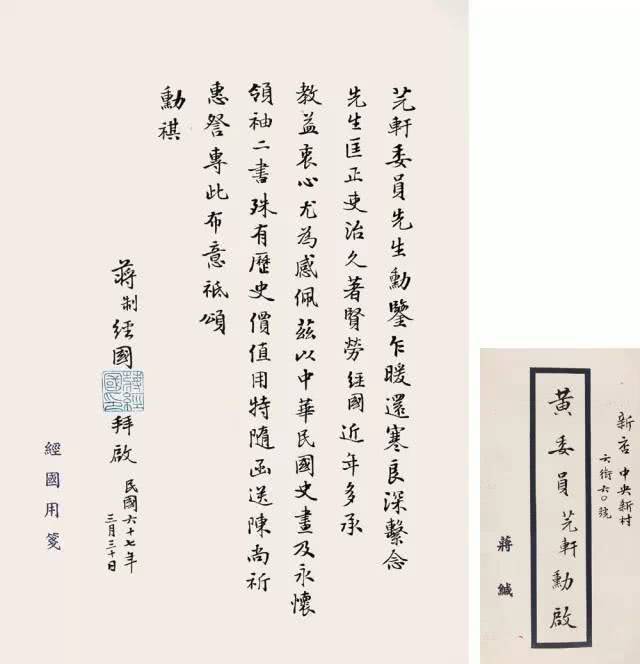 芝軒委員先生勳鑒乍暖還寒良深繫念
先生匡正吏治久著賢勞經國近年多承
教益衷心尤為感佩茲以中華民國史畫及永懷
領袖二書殊有歷史價值用特隨函送陳尚祈
惠詧專此布意祗頌
勳祺
蔣制經國拜啟
民國六十七年
三月三十日
經國用箋
新店中央新村
六街六〇號
黃委員芝軒勳啟
蔣緘